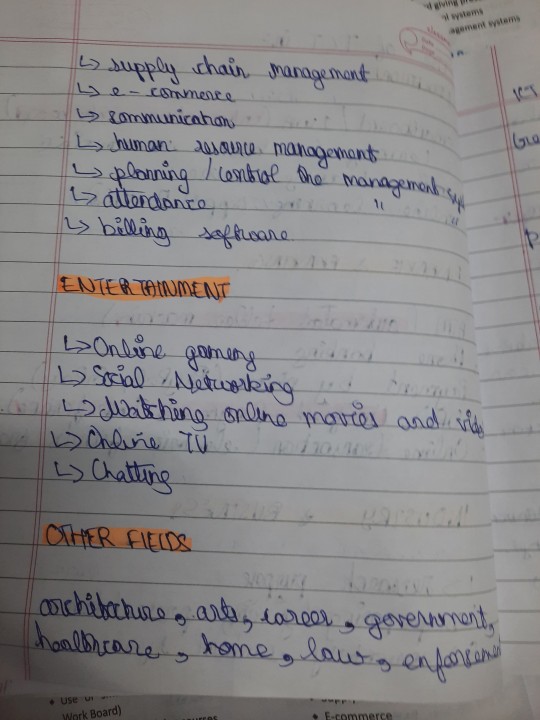 giving pro
al systems
agement systems
↳ supply chain management
↳ e-commerce
↳ communication
↳ human resource management
↳ planning / control the management
↳ attendance " "
↳ billing software
ENTERTAINMENT
↳ Online gaming
↳ Social Networking
↳ Watching online movies and vide
↳ Online TV
↳ Chatting
OTHER FIELDS
architecture, arts, career, government,
healthcare, home, law, enforcement
Work Board)
• E-commerce